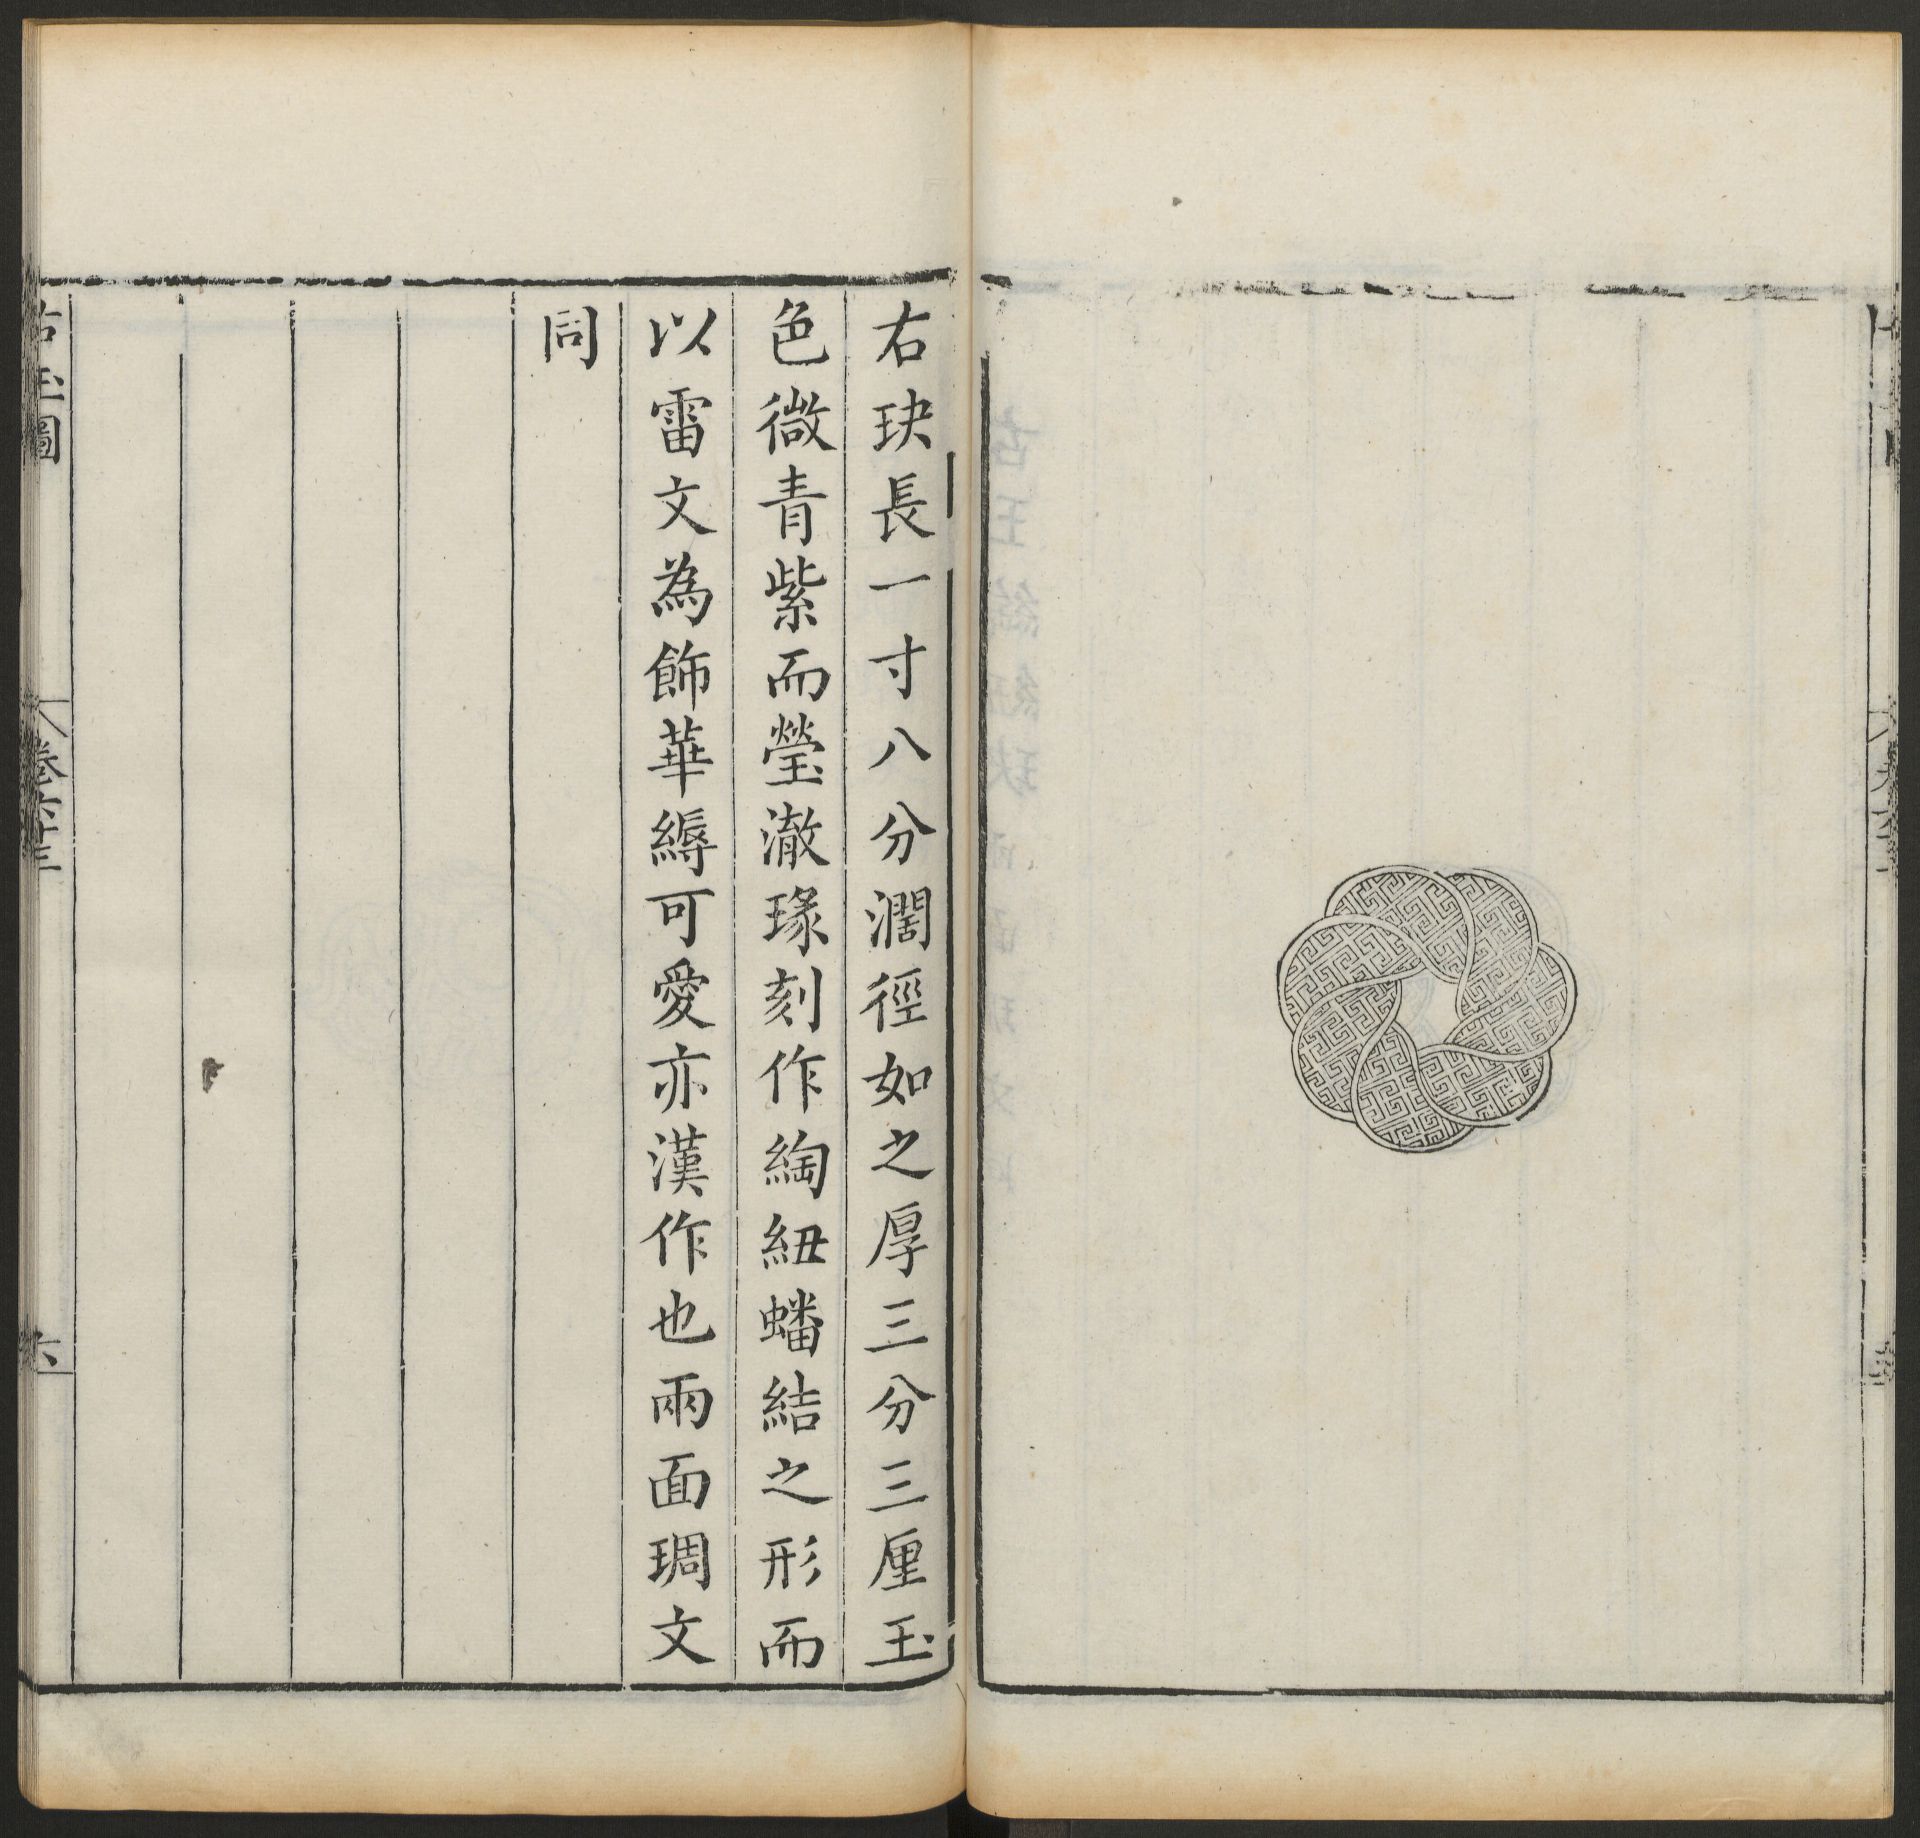 右玦長一寸八分濶徑如之厚三分三厘玉
色微青紫而瑩澈瑑刻作綯紐蟠結之形而
以雷文為飾華縟可愛亦漢作也兩面琱文
同
古玉圖
卷六十三
六